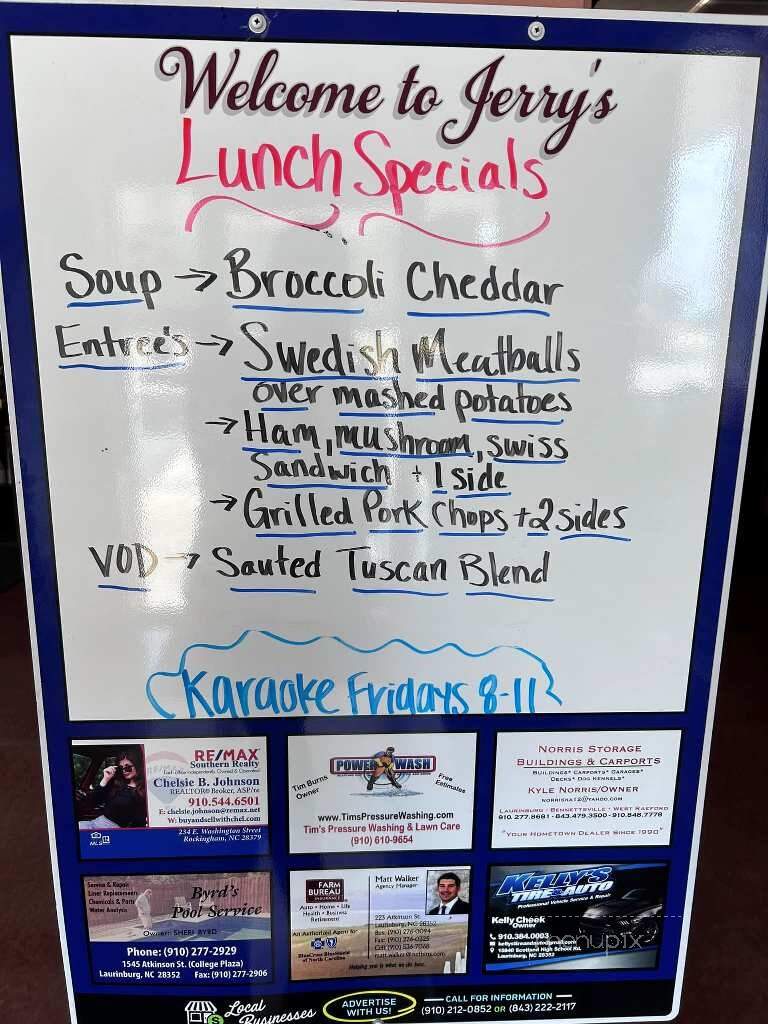 Welcome to Jerry's
Lunch Specials
Soup → Broccoli Cheddar
Entree's → Swedish Meatballs
over mashed potatoes
→ Ham, mushroom, swiss
Sandwich + 1 side
→ Grilled Pork Chops + 2 sides
VOD → Sauted Tuscan Blend
Karaoke Fridays 8-11
RE/MAX
Southern Realty
Each Office Independently Owned & Operated
Chelsie B. Johnson
REALTOR® Broker, ASP/re
910.544.6501
E: chelsie.johnson@remax.net
W: buyandsellwithchel.com
234 E. Washington Street
Rockingham, NC 28379
MLS
POWER WASH
Tim Burns
Owner
Free
Estimates
www.TimsPressureWashing.com
Tim's Pressure Washing & Lawn Care
(910) 610-9654
Norris Storage
Buildings & Carports
Buildings* Carports* Garages*
Decks* Dog Kennels*
Kyle Norris/Owner
norriska12@yahoo.com
Laurinburg • Bennettsville • West Raeford
910.277.8681 - 843.479.3500 - 910.848.7778
"Your Hometown Dealer Since 1990"
Service & Repair
Liner Replacements
Chemicals & Parts
Water Analysis
Byrd's
Pool Service
Owner: SHERI BYRD
Phone: (910) 277-2929
1545 Atkinson St. (College Plaza)
Laurinburg, NC 28352 Fax: (910) 277-2906
FARM
BUREAU
INSURANCE
Auto • Home • Life
Health • Business
Retirement
An Authorized Agent for
BlueCross BlueShield
of North Carolina
Matt Walker
Agency Manager
223 Atkinson St.
Laurinburg, NC 28352
Helping you is what we do best.
KELLY'S
TIRE & AUTO
Professional Vehicle Service & Repair
Kelly Cheek
Owner
910.384.0003
kellystireandauto@gmail.com
15840 Scotland High School Rd.
Laurinburg, NC 28352
menupix
Local
Businesses
ADVERTISE
WITH US!
CALL FOR INFORMATION
(910) 212-0852 OR (843) 222-2117